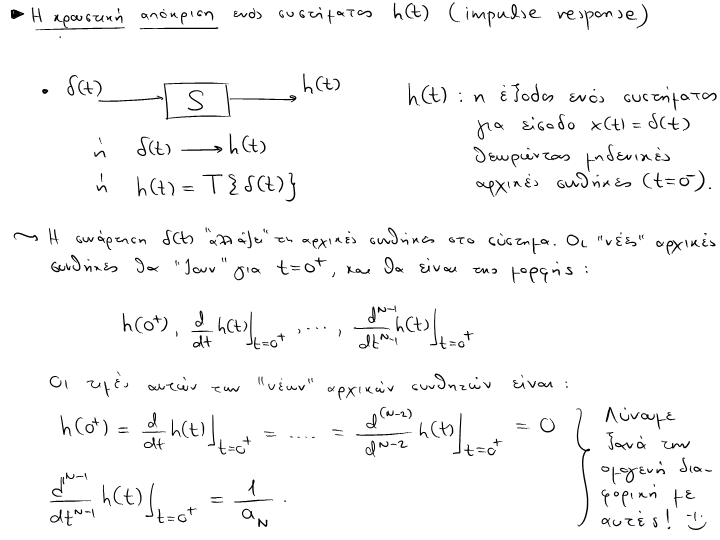 ► Η κρουστική απόκριση ενός συστήματος h(t) (impulse response)
• δ(t) → S → h(t)
ή δ(t) → h(t)
ή h(t) = T{δ(t)}
h(t) : η έξοδος ενός συστήματος
για είσοδο x(t) = δ(t)
θεωρώντας μηδενικές
αρχικές συνθήκες (t=0⁻).
~> Η συνάρτηση δ(t) "αλλάζει" τις αρχικές συνθήκες στο σύστημα. Οι "νέες" αρχικές
συνθήκες θα "ζουν" για t=0⁺, και θα είναι της μορφής :
h(0⁺), d/dt h(t)|_{t=0⁺}, ..., d^{N-1}/dt^{N-1} h(t)|_{t=0⁺}
Οι τιμές αυτών των "νέων" αρχικών συνθηκών είναι :
h(0⁺) = d/dt h(t)|_{t=0⁺} = .... = d^{(N-2)}/d^{N-2} h(t)|_{t=0⁺} = 0
d^{N-1}/dt^{N-1} h(t)|_{t=0⁺} = 1/a_N .
Λύνουμε
ξανά την
ομογενή δια-
φορική με
αυτές! :)